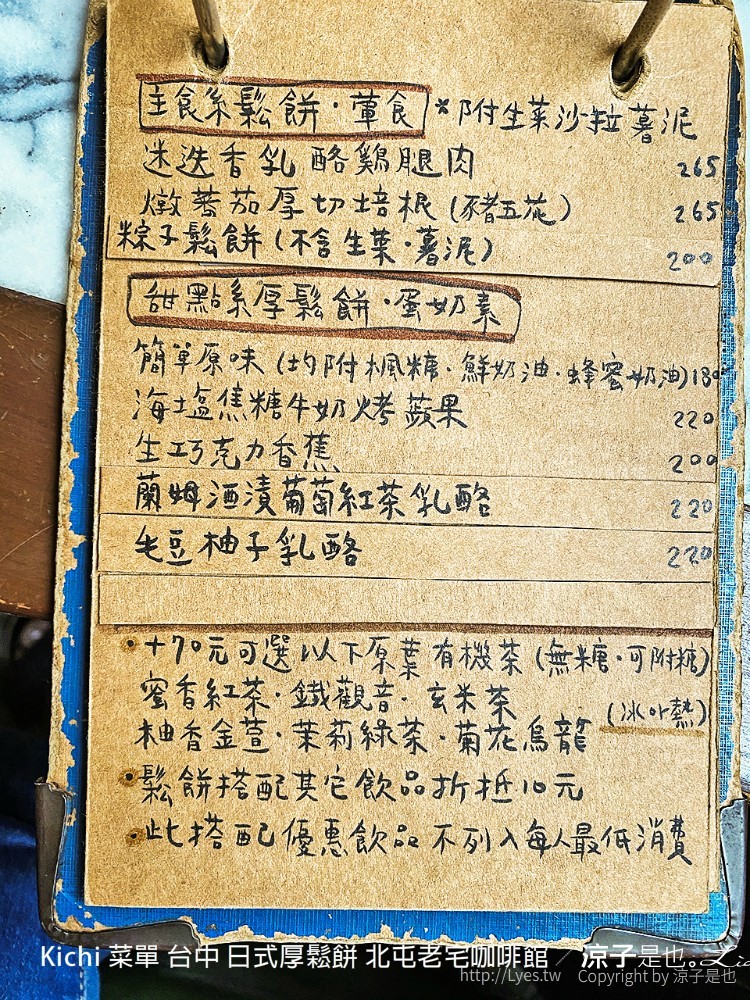 主食系鬆餅・葷食 *附生菜沙拉薯泥
迷迭香乳酪鷄腿肉 265
燉蕃茄厚切培根(豬五花) 265
粽子鬆餅(不含生菜・薯泥) 200
甜點系厚鬆餅・蛋奶素
簡單原味(均附楓糖・鮮奶油・蜂蜜奶油)180
海塩焦糖牛奶烤蘋果 220
生巧克力香蕉 200
蘭姆酒漬葡萄紅茶乳酪 220
毛豆柚子乳酪 220
+70元可選以下原葉有機茶(無糖・可附糖)
蜜香紅茶・鐵觀音・玄米茶
(冰or熱)
柚香金萱・茉莉綠茶・菊花烏龍
鬆餅搭配其它飲品折抵10元
此搭配優惠飲品不列入每人最低消費
Kichi 菜單 台中 日式厚鬆餅 北屯老宅咖啡館 / 涼子是也。
http://Lyes.tw Copyright by 涼子是也